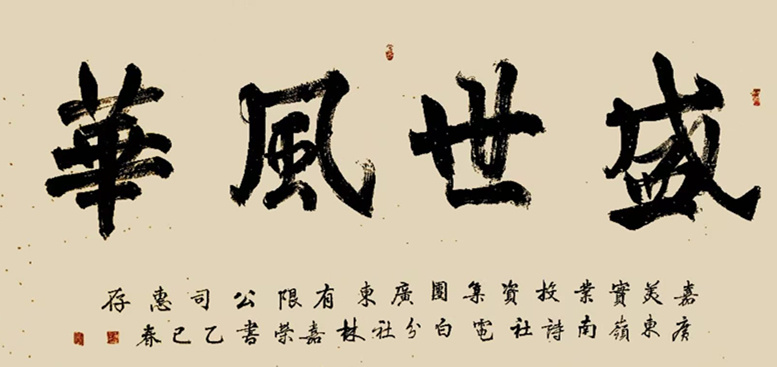 盛世風華
嘉美實業投資集團廣東有限公司惠存
广東嶺南詩社電白分社林嘉榮書乙巳春